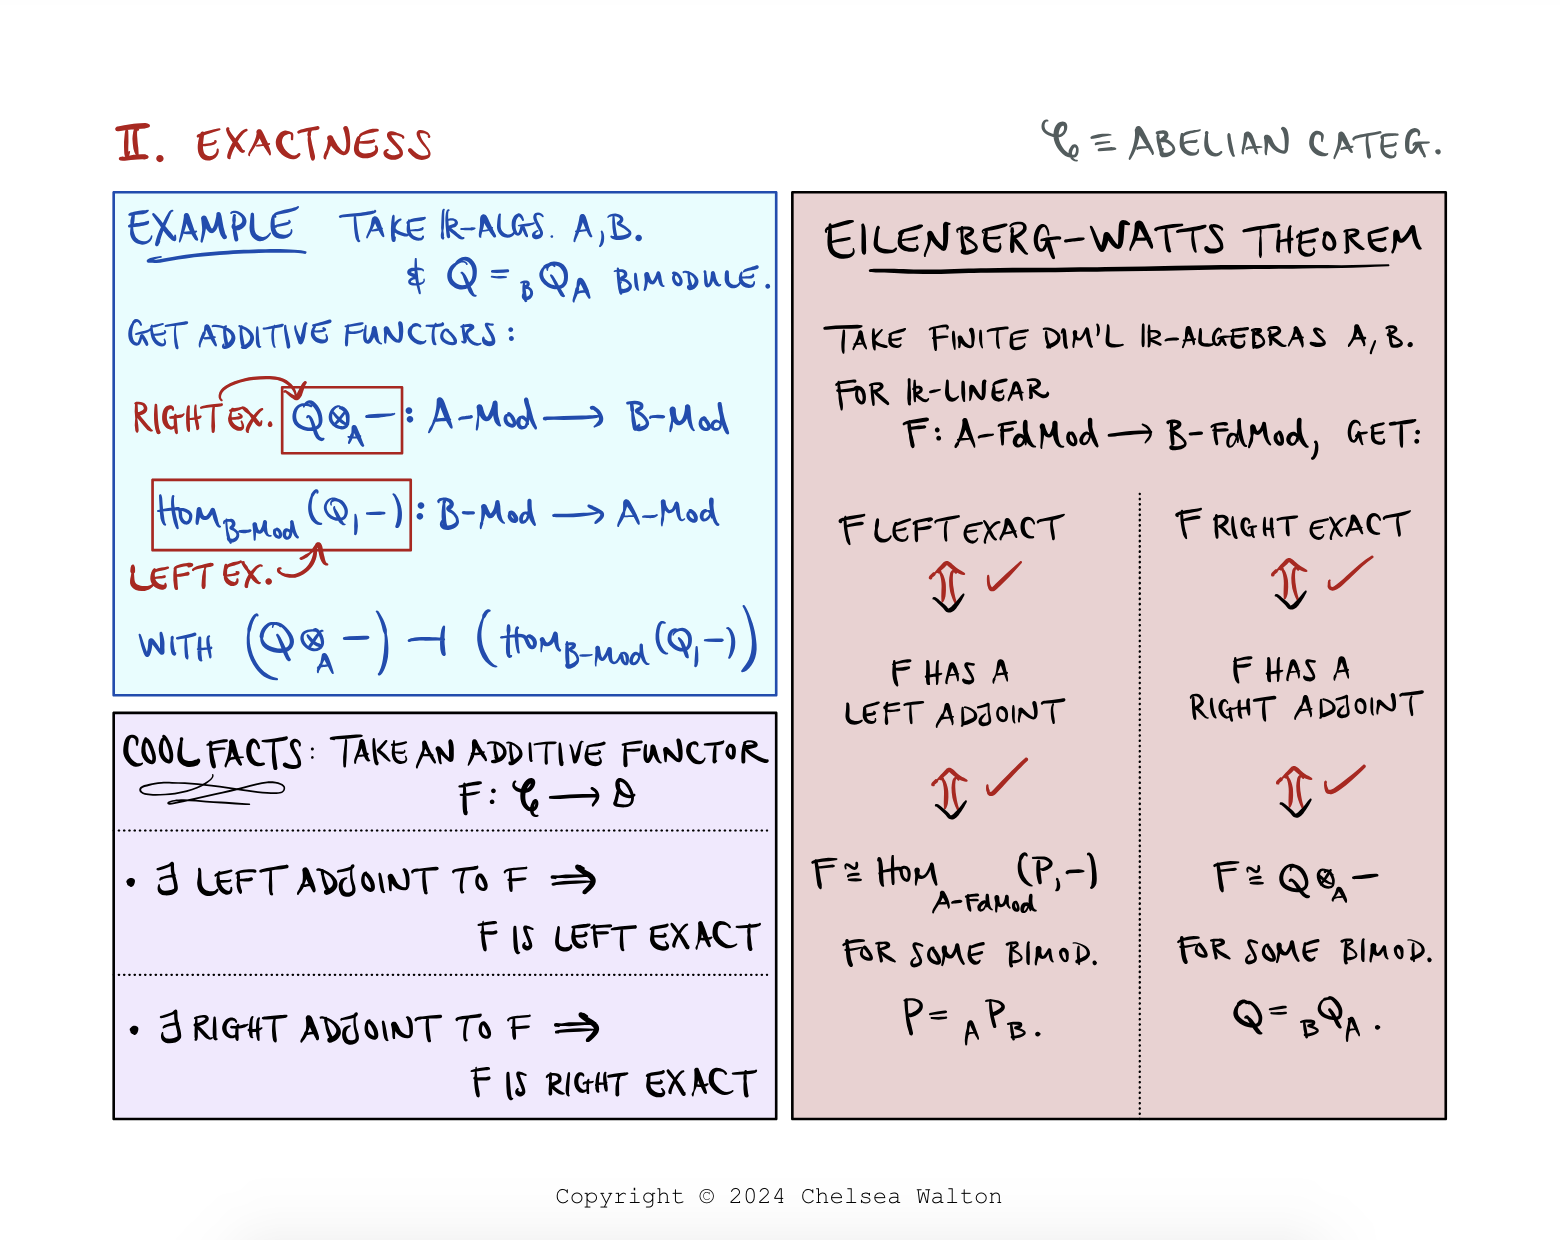 II. EXACTNESS
𝒞 ≡ ABELIAN CATEG.
EXAMPLE TAKE 𝕜-ALGS. A, B.
& Q = BQA BIMODULE.
GET ADDITIVE FUNCTORS:
RIGHT EX. Q⊗A − : A-Mod ⟶ B-Mod
HomB-Mod (Q,−) : B-Mod ⟶ A-Mod
LEFT EX.
WITH (Q⊗A −) ⊣ (HomB-Mod(Q,−))
COOL FACTS: TAKE AN ADDITIVE FUNCTOR
F: 𝒞 ⟶ 𝒟
• ∃ LEFT ADJOINT TO F ⇒
F IS LEFT EXACT
• ∃ RIGHT ADJOINT TO F ⇒
F IS RIGHT EXACT
EILENBERG-WATTS THEOREM
TAKE FINITE DIM'L 𝕜-ALGEBRAS A, B.
FOR 𝕜-LINEAR
F: A-FdMod ⟶ B-FdMod, GET:
F LEFT EXACT
⇕ ✓
F HAS A
LEFT ADJOINT
⇕ ✓
F ≅ Hom A-FdMod (P,−)
FOR SOME BIMOD.
P = APB.
F RIGHT EXACT
⇕ ✓
F HAS A
RIGHT ADJOINT
⇕ ✓
F ≅ Q⊗A −
FOR SOME BIMOD.
Q = BQA.
Copyright © 2024 Chelsea Walton